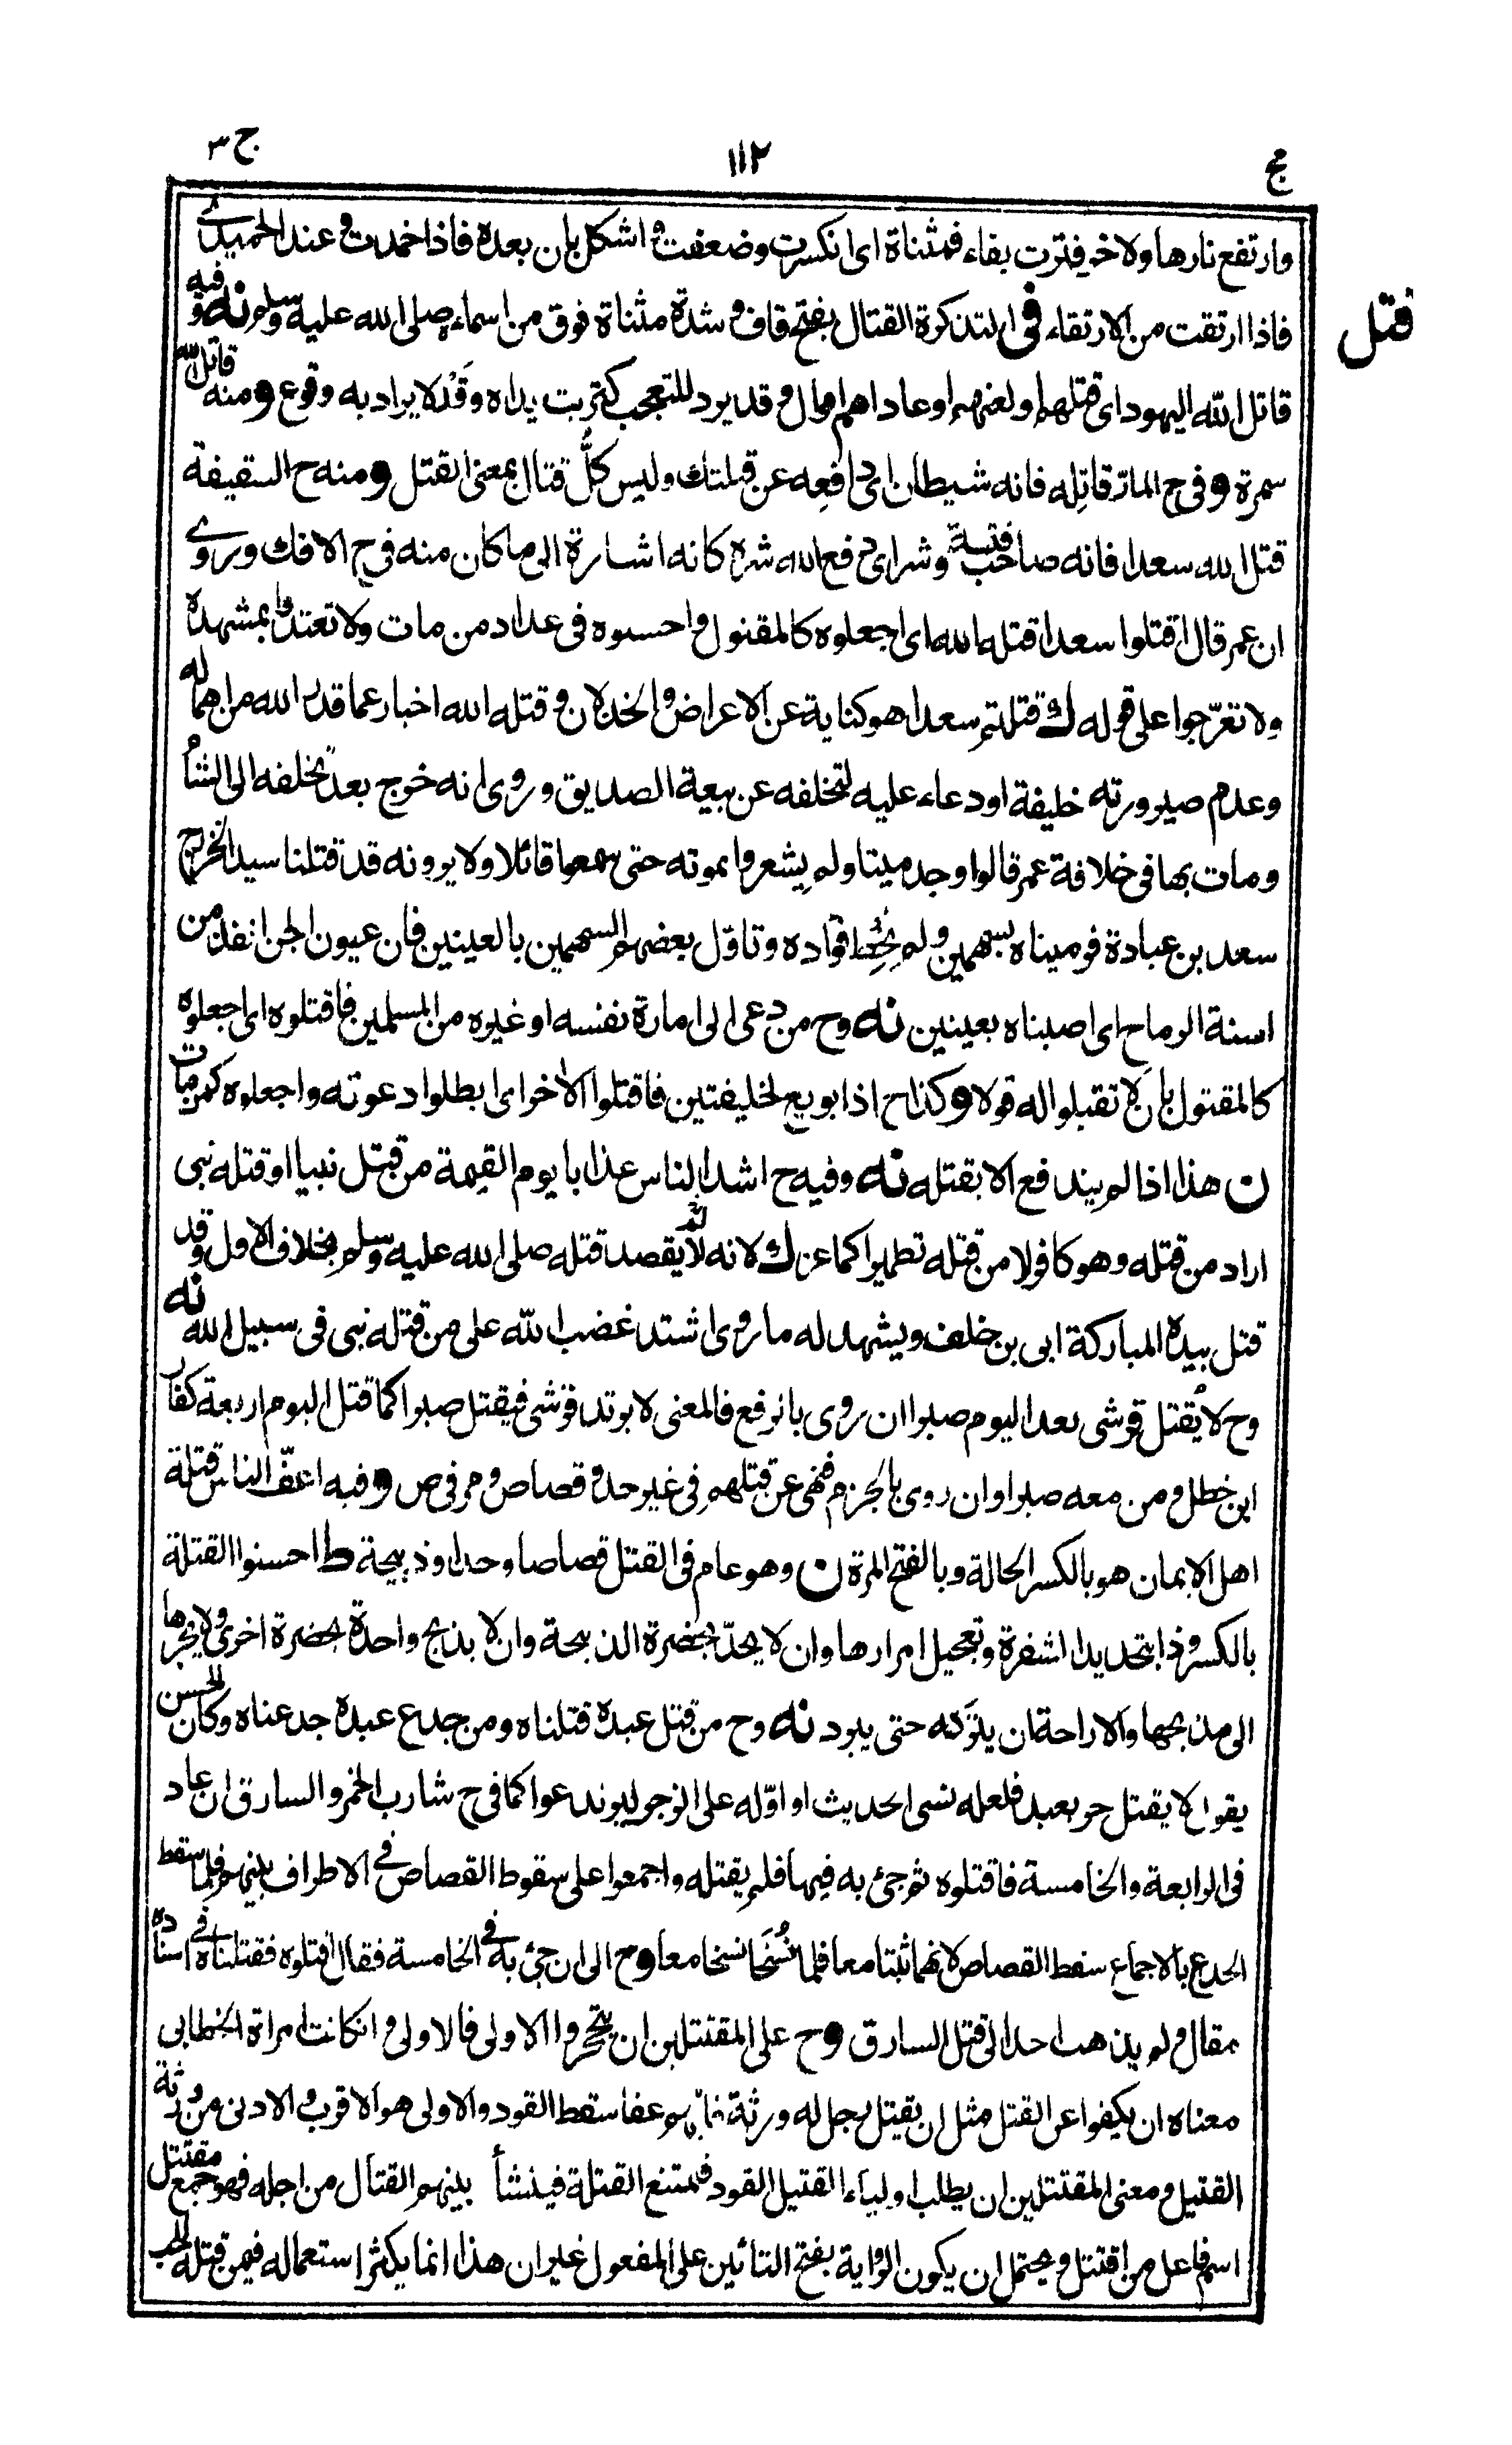 مج ١١٢ ج ٣
قتل
وارتفع نارها ولاخر فترت بفاء فمثناة اى انكسرت وضعفت و اشكل بان بعده فاذا خمدت و عند الحميدى
فاذا ارتقت من الارتقاء فى التذكرة القتال بفتح قاف و شدة مثناة فوق من اسماءه صلى الله عليه وسلم نه وفيه
قاتل الله اليهود اى قتلهم او لعنهم او عاداهم اقوال و قد يرد للتعجب كتربت يداه وقد لا يراد به وقوع ومنه قاتل الله
سمرة وفى ح المارّ قاتِله فانه شيطان اى دافِعه عن قبلتك وليس كلُّ قتال بمعنى القتل ومنه ح السقيفة
قتل الله سعدا فانه صاحب فتنة وشر اى دفع الله شره كانه اشارة الى ما كان منه فى ح الافك وروى
ان عمر قال اقتلوا سعدا قتله الله اى اجعلوه كالمقتول و احسبوه فى عداد من مات ولا تعتدوا بمشهده
ولا تعرّجوا على قوله ك قتلتم سعدا هو كناية عن الاعراض و الخذلان و قتله الله اخبار عما قدر الله من اهماله
وعدم صيرورته خليفة او دعاء عليه لتخلفه عن بيعة الصديق وروى انه خرج بعد تخلفه الى الشام
ومات بها فى خلافة عمر قالوا وجد ميتا ولم يشعروا بموته حتى سمعوا قائلا ولا يرونه قد قتلنا سيد الخزرج
سعد بن عبادة فرميناه بسهمين و لم نُخْطِ فؤاده وتاوّل بعضهم السهمين بالعينين فان عيون الجن انفذ من
اسنة الرماح اى اصبناه بعينين نه وح من دعى الى امارة نفسه او غيره من المسلمين فاقتلوه اى اجعلوه
كالمقتول بان لا تقبلوا له قولا وكذا ح اذا بويع لخليفتين فاقتلوا الاخر اى ابطلوا دعوته واجعلوه كمن مات
ن هذا اذا لم يندفع الا بقتله نه وفيه ح اشد الناس عذابا يوم القيمة من قتل نبيا او قتله نبى
اراد من قتله وهو كافر لا من قتله تطهيرا كماعز ك لانه لا يقصد قتله صلى الله عليه وسلم بخلاف الاول وقد
قتل بيده المباركة ابى بن خلف ويشهد له ما روى اشتد غضب الله على من قتله نبى فى سبيل الله نه
وح لا يُقتل قرشى بعد اليوم صبرا ان روى بالرفع فالمعنى لا يرتد قرشى فيقتل صبرا كما قتل اليوم اربعة كفار
ابن خطل و من معه صبرا وان روى بالجزم فنهى عن قتلهم فى غير حد و قصاص و مر فى ص وفيه اعفّ الناس قتلة
اهل الايمان هو بالكسر الحالة وبالفتح المرة ن وهو عام فى القتل قصاصا وحدا وذبيحة ط احسنوا القتلة
بالكسر و ذا بتحديد الشفرة و تعجيل امرارها وان لا يحدّ بحضرة الذبيحة وان لا يذبح واحدة بحضرة اخرى ولا يجرها
الى مذبحها والاراحة ان يتركه حتى يبرد نه وح من قتل عبده قتلناه ومن جدع عبده جدعناه وكان الحسن
يقول لا يقتل حر بعبد فلعله نسى الحديث او اوّله على الزجر ليرتدعوا كما فى ح شارب الخمر والسارق ان عاد
فى الرابعة والخامسة فاقتلوه ثم جئ به فيها فلم يقتله واجمعوا على سقوط القصاص فى الاطراف بينهم فلما سقط
الجدع بالاجماع سقط القصاص لانهما ثبتا معا فلما نُسخا نسخا معا وح الى ان جئ به فى الخامسة فقال اقتلوه فقتلناه فى اسناده
مقال و لم يذهب احد الى قتل السارق وح على المقتتلين ان يتحجزوا الاولى فالاولى و ان كانت امراة الخطابى
معناه ان يكفوا عن القتل مثل ان يقتل رجل له ورثة فايهم عفا سقط القود والاولى هو الاقرب و الادنى من ورثة
القتيل و معنى المقتتلين ان يطلب اولياء القتيل القود فيمتنع القتلة فينشأ بينهم القتال من اجله فهو جمع مقتتل
اسم فاعل من اقتتل و يحتمل ان يكون الرواية بفتح التائين على المفعول غير ان هذا انما يكثر استعماله فيمن قتله الحب